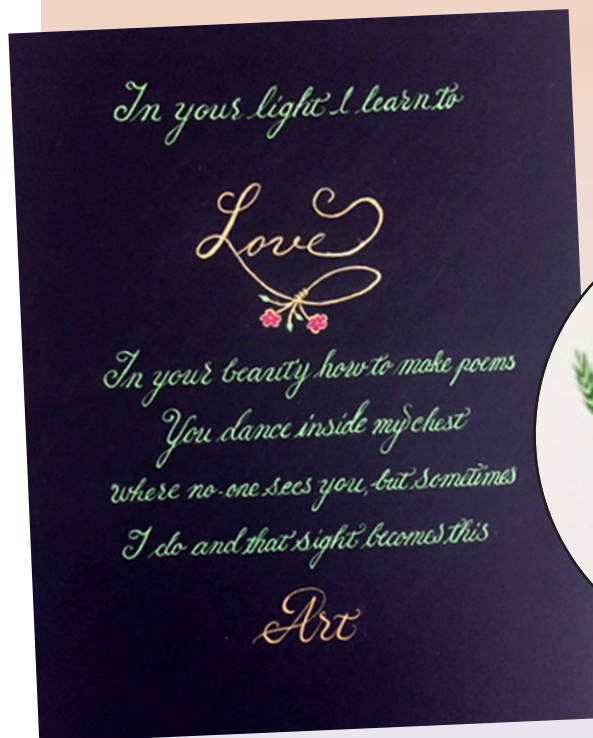 In your light I learn to
Love
In your beauty how to make poems
You dance inside my chest
where no-one sees you, but sometimes
I do and that sight becomes this
Art